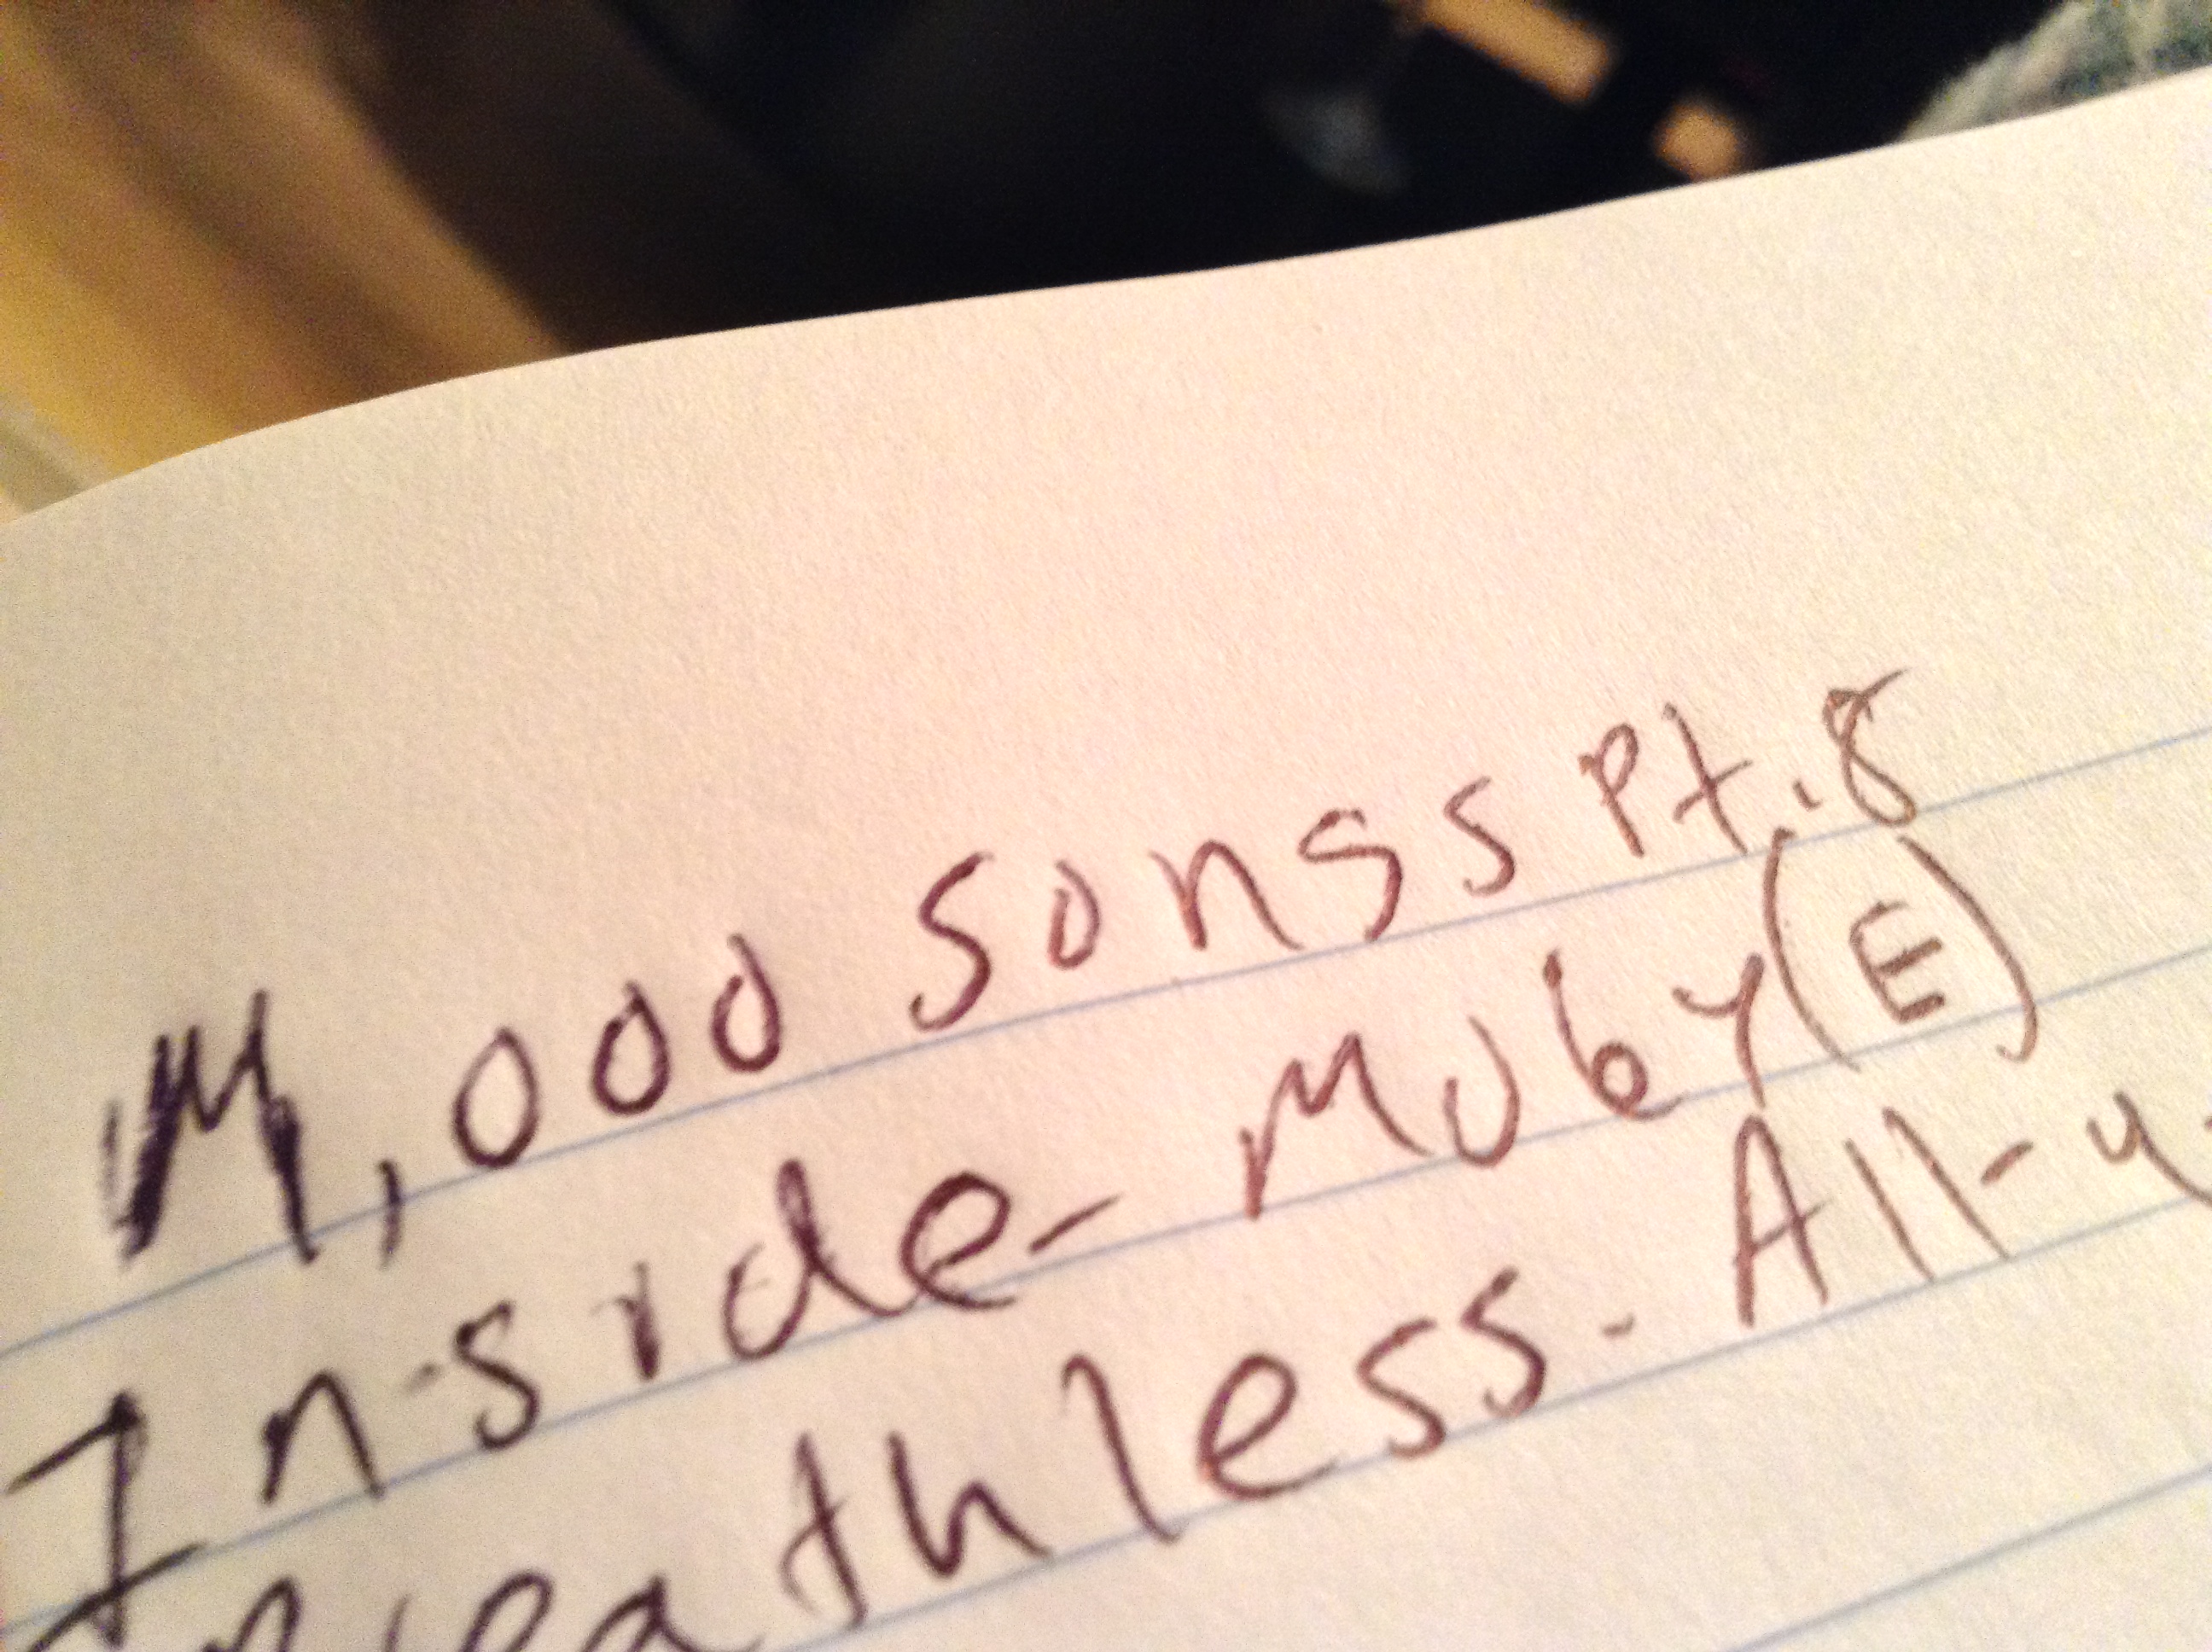 M, ood songs Pt. 8
Inside- Moby (E)
Breathless- All-y